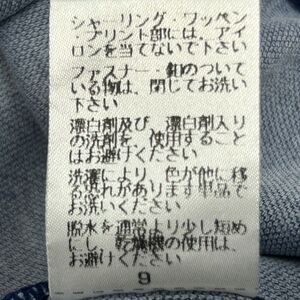 シャーリング・ワッペン
・プリント部には、アイ
ロンを当てないで下さい
ファスナー・釦のついて
いる物は、閉じてお洗い
下さい
漂白剤及び、漂白剤入り
の洗剤を、使用すること
はお避けください
洗濯により、色が他に移
る恐れがあります単品で
お洗いください
脱水を通常より少し短め
にし、乾燥機の使用は、
お避けください
9